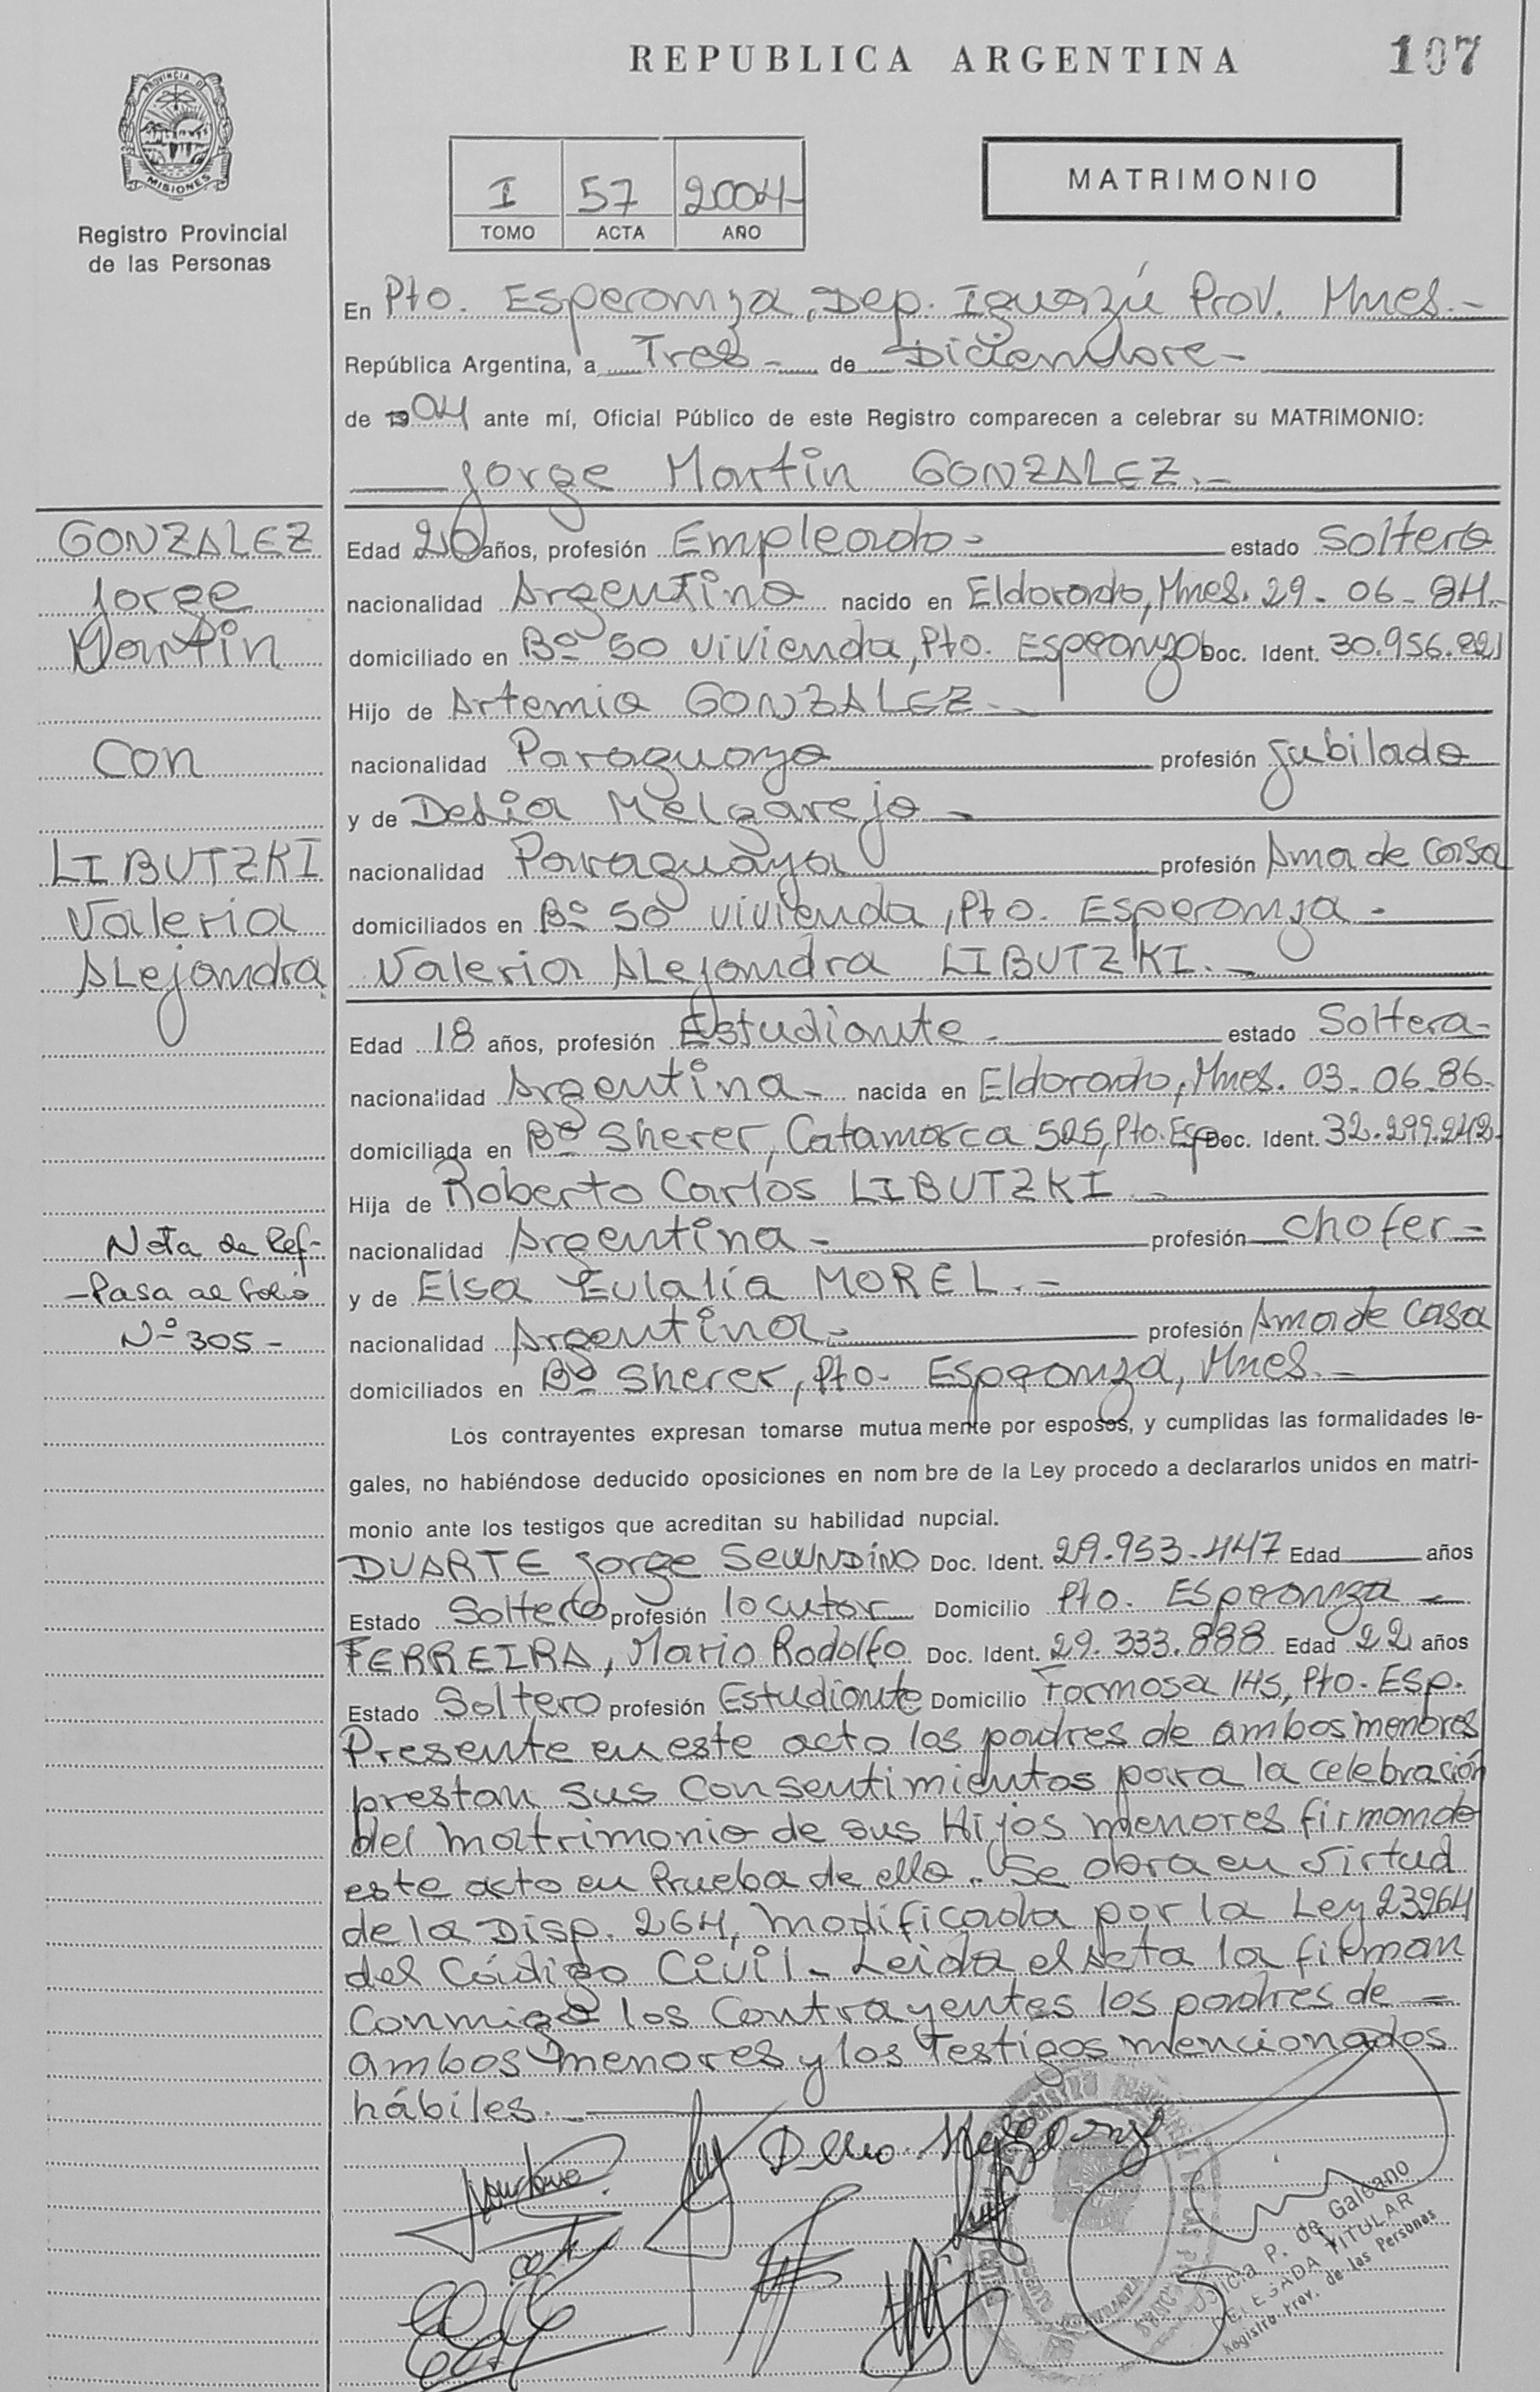 REPUBLICA ARGENTINA
107
PROVINCIA DE
MISIONES
Registro Provincial
de las Personas
I 57 2004
TOMO ACTA AÑO
MATRIMONIO
En Pto. Esperanza, Dep. Iguazú Prov. Mnes.-
República Argentina, a Tres - de Diciembre -
de 19 04 ante mí, Oficial Público de este Registro comparecen a celebrar su MATRIMONIO:
Jorge Martin GONZALEZ.-
GONZALEZ
Jorge
Martin
Con
LIBUTZKI
Valeria
ALejandra
Nota de Ref-
-Pasa al folio
Nº 305-
Edad 20 años, profesión Empleado - estado Soltero
nacionalidad Argentina nacido en Eldorado, Mnes. 29-06-84-
domiciliado en Bº 50 vivienda, Pto. Esperanza Doc. Ident. 30.956.821
Hijo de Artemio GONZALEZ.-
nacionalidad Paraguayo profesión Jubilado
y de Delia Melgarejo -
nacionalidad Paraguaya profesión Ama de Casa
domiciliados en Bº 50 vivienda, Pto. Esperanza -
Valeria ALejandra LIBUTZKI.-
Edad 18 años, profesión Estudiante - estado Soltera-
nacionalidad Argentina - nacida en Eldorado, Mnes. 03-06-86-
domiciliada en Bº Sherer, Catamarca 525, Pto. Esp. Doc. Ident. 32.299.242-
Hija de Roberto Carlos LIBUTZKI -
nacionalidad Argentina - profesión chofer -
y de Elsa Eulalia MOREL.-
nacionalidad Argentina - profesión Ama de Casa
domiciliados en Bº Sherer, Pto. Esperanza, Mnes.-
Los contrayentes expresan tomarse mutua mente por esposos, y cumplidas las formalidades le-
gales, no habiéndose deducido oposiciones en nom bre de la Ley procedo a declararlos unidos en matri-
monio ante los testigos que acreditan su habilidad nupcial.
DUARTE Jorge SECUNDINO Doc. Ident. 29.953.447 Edad años
Estado Soltero profesión locutor Domicilio Pto. Esperanza -
FERREIRA, Mario Rodolfo Doc. Ident. 29.333.888 Edad 22 años
Estado Soltero profesión Estudiante Domicilio Formosa 145, Pto. Esp.
Presente en este acto los padres de ambos menores
prestan sus consentimientos para la celebración
del matrimonio de sus Hijos menores firmando
este acto en Prueba de ello. Se obra en virtud
de la Disp. 264, modificada por la Ley 23264
del Código Civil - Leida el Acta la firman
Conmigo los Contrayentes los padres de -
ambos menores y los Testigos mencionados
hábiles. -
P. de Galeano
DELEGADA TITULAR
Registro Prov. de las Personas